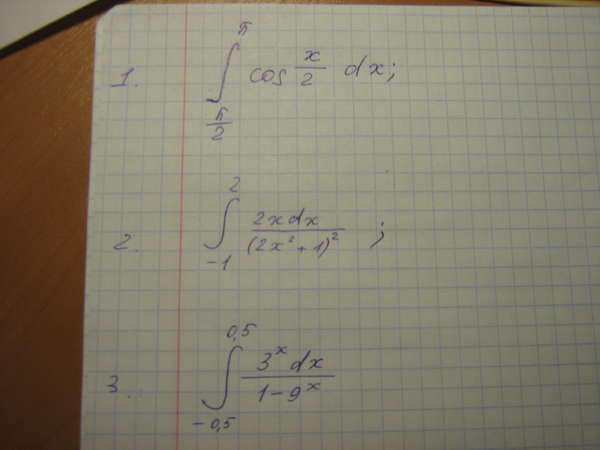 1. ∫_{π/2}^{π} cos x/2 dx;
2. ∫_{-1}^{2} 2xdx/(2x²+1)² ;
3. ∫_{-0,5}^{0,5} 3^x dx/(1-9^x)